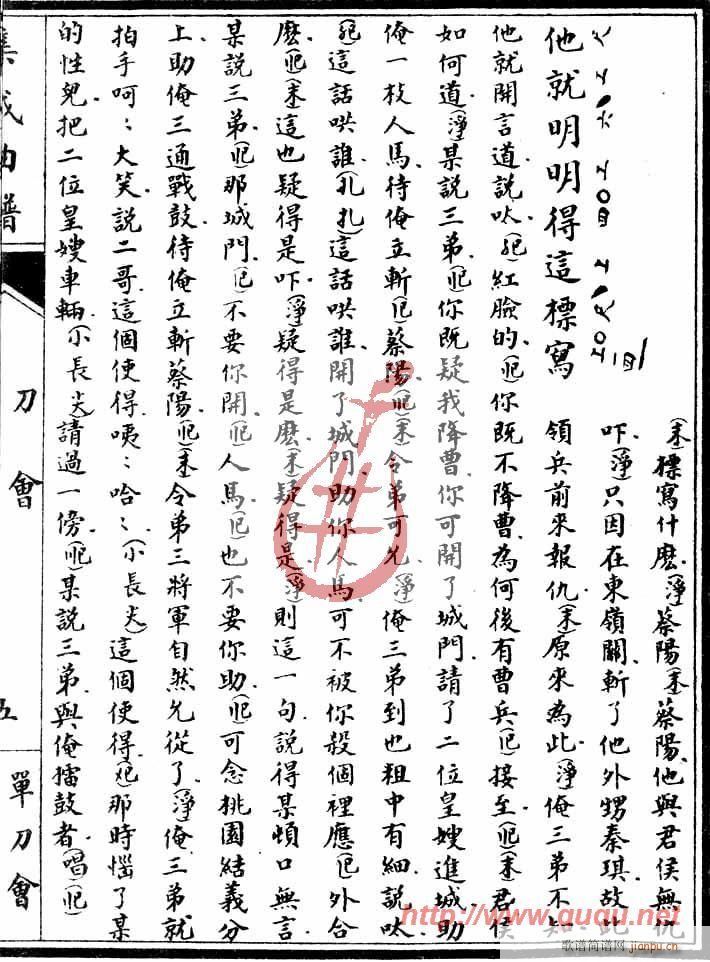 (末)標寫什麽.(淨)蔡陽(末)蔡陽.他與君侯無仇
吓.(淨)只因在東嶺關.斬了他外甥秦琪.故此
他就明明得這標寫
領兵前來報仇.(末)原來為此.(淨)俺三弟不知.
他就開言道.說呔.紅臉的.你既不降曹.為何後有曹兵接至.(末)君侯
如何道.(淨)某說三弟.你既疑我降曹.你可開了城門.請了二位皇嫂進城.助
俺一枝人馬.待俺立斬蔡陽.(末)令弟可允.(淨)俺三弟到也粗中有細.說呔.
這話哄誰.(孔孔)這話哄誰.開了城門.助你人馬.可不被你殺個裡應外合
麽.(末)這也疑得是吓.(淨)疑得是麽.(末)疑得是.(淨)則這一句.說得某頓口無言.
某說三弟.那城門.不要你開.人馬也不要你助.可念桃園結義分
上.助俺三通戰鼓.待俺立斬蔡陽.(末)令弟三將軍自然允從了.(淨)俺三弟就
拍手呵〻大笑.說二哥.這個使得.咦〻哈〻.(小長尖)這個使得.那時惱了某
的性兒.把二位皇嫂車輛.(小長尖)請過一傍.某說三弟.與俺擂鼓者.(唱)
集成曲譜
刀會
五
單刀會
http://www.guqu.net
歌谱简谱网
jianpu.cn